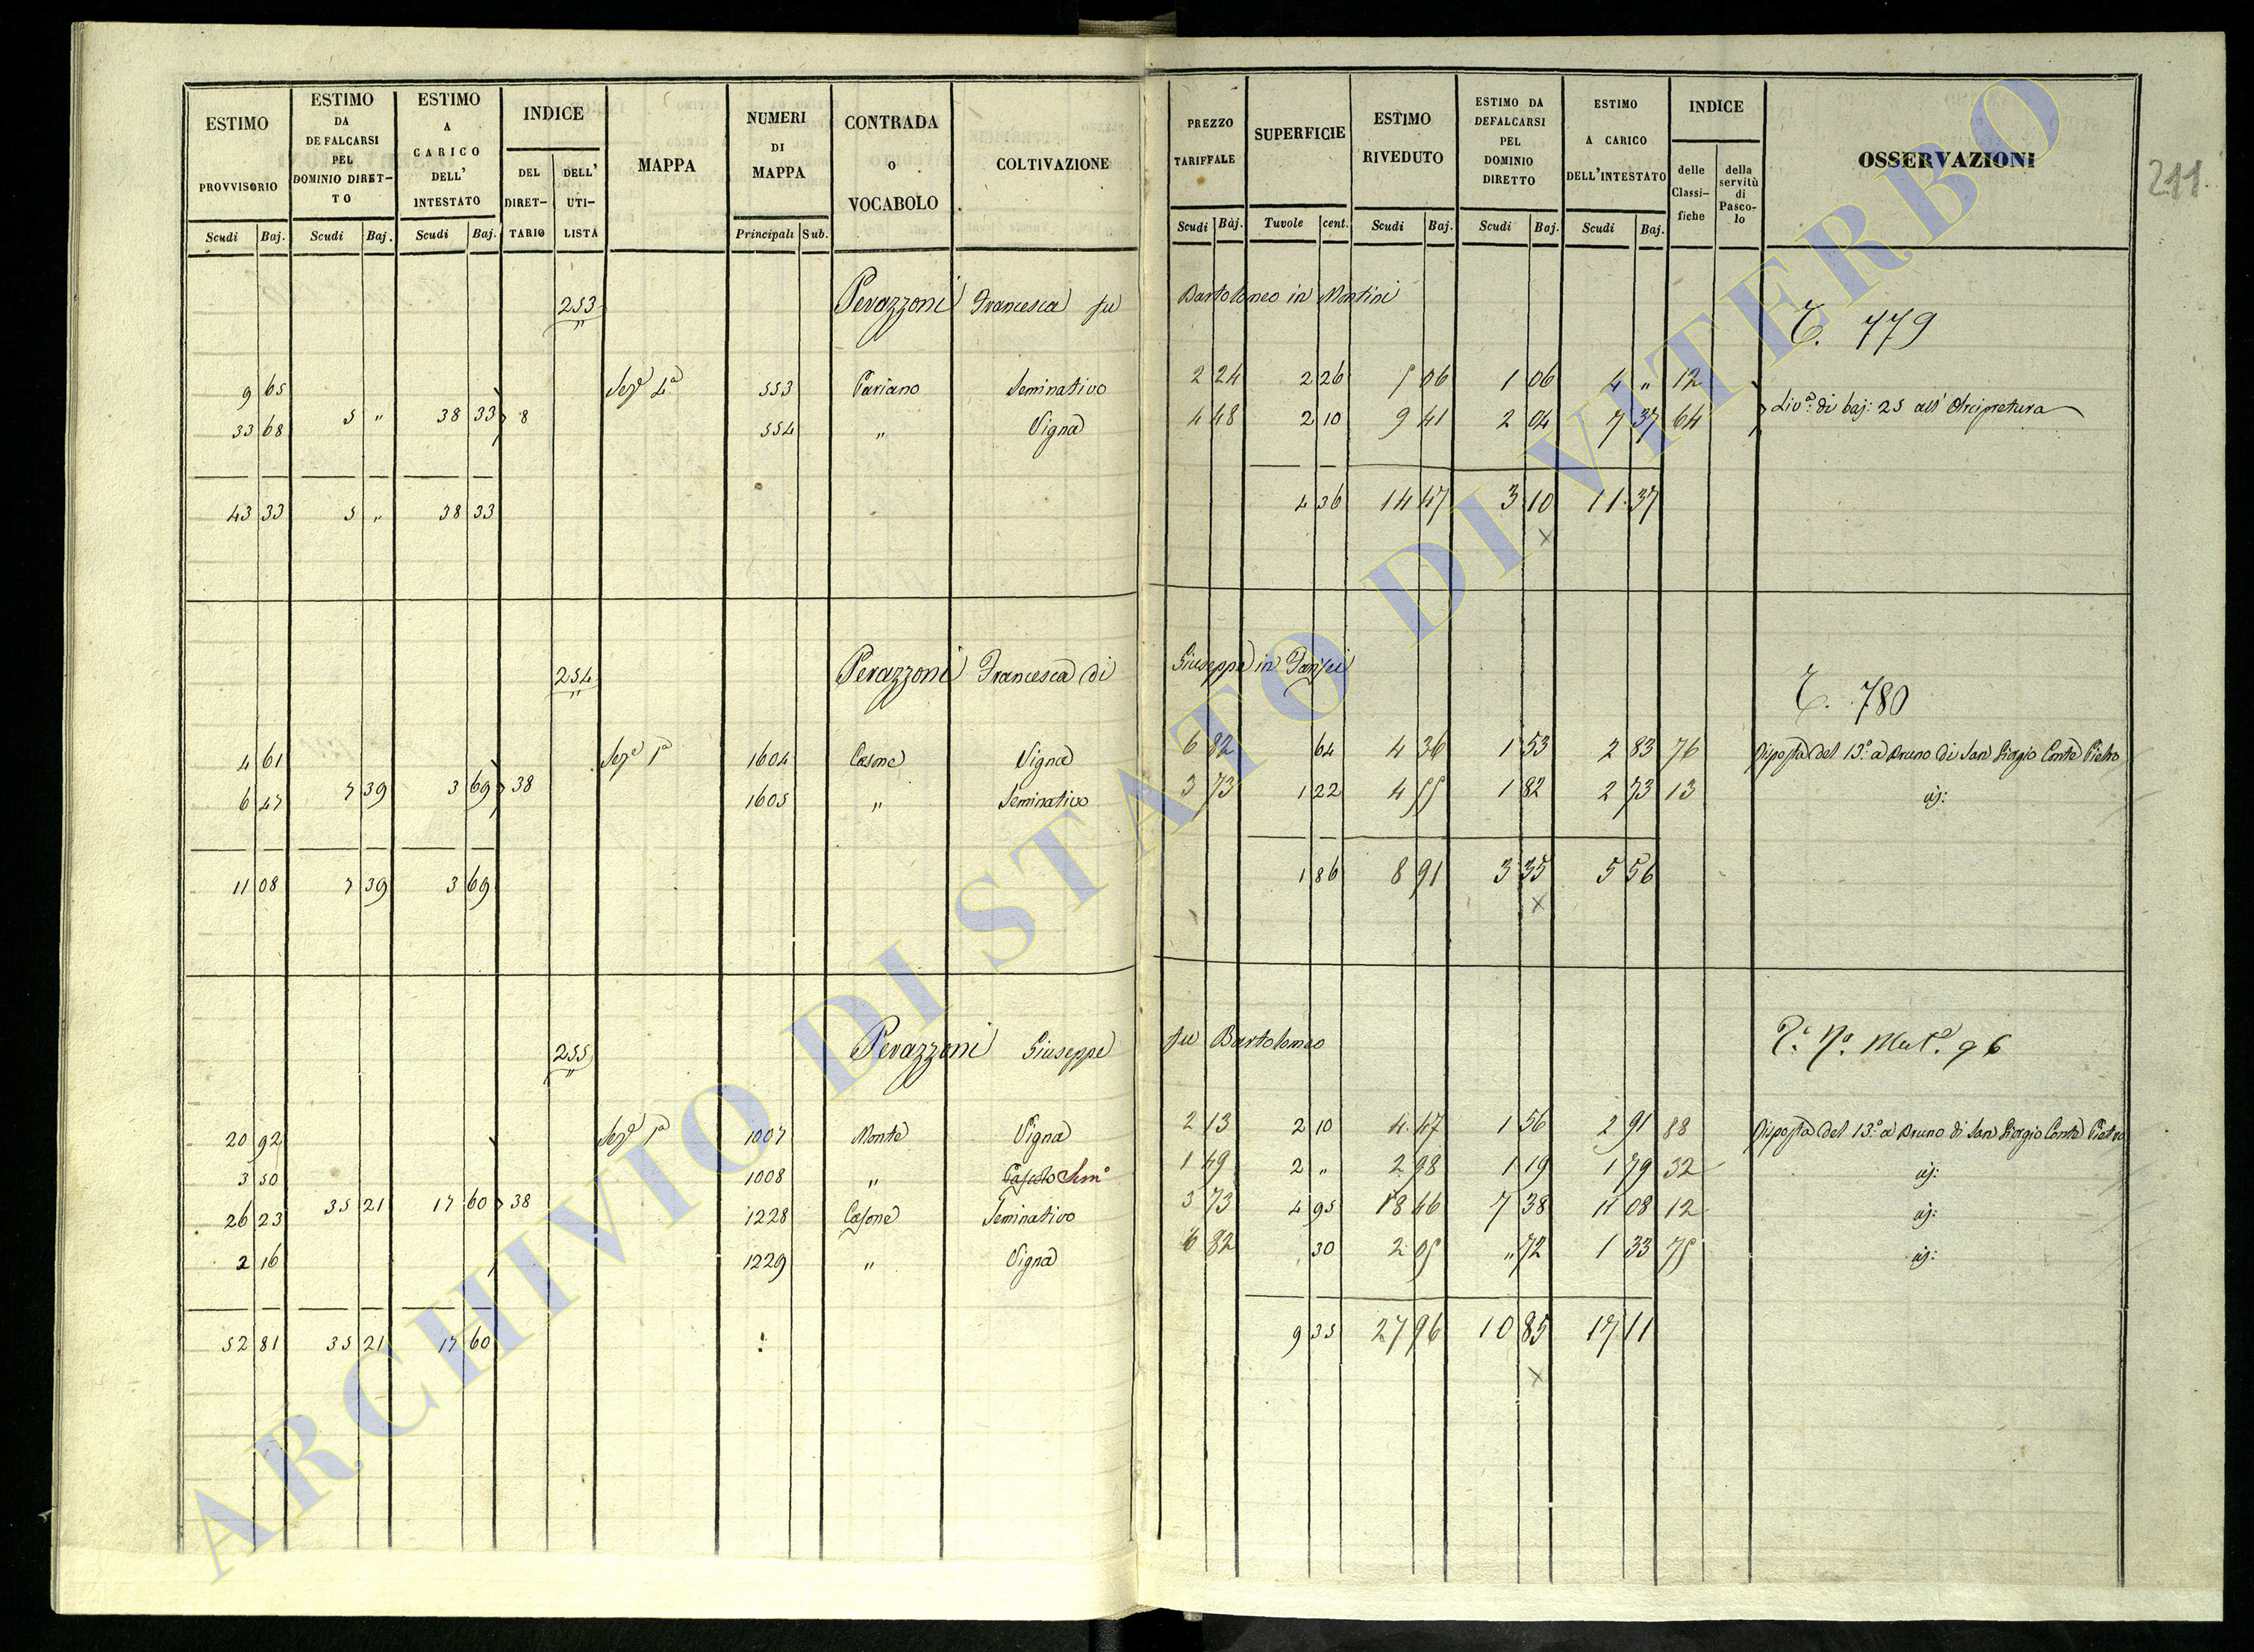 ESTIMO PROVVISORIO
ESTIMO DA DE FALCARSI PEL DOMINIO DIRET-TO
ESTIMO A CARICO DELL' INTESTATO
INDICE
DEL DIRET-TARIO
DELL' UTI-LISTA
MAPPA
NUMERI DI MAPPA
CONTRADA o VOCABOLO
COLTIVAZIONE
PREZZO TARIFFALE
SUPERFICIE
ESTIMO RIVEDUTO
ESTIMO DA DEFALCARSI PEL DOMINIO DIRETTO
ESTIMO A CARICO DELL'INTESTATO
INDICE
delle Classi-fiche
della servitù di Pasco-lo
OSSERVAZIONI
211.
Scudi Baj. Scudi Baj. Scudi Baj. Principali Sub. Scudi Baj. Tavole cent. Scudi Baj. Scudi Baj. Scudi Baj.
253 Perazzoni Francesca fu Bartolomeo in Montini
779
9 65 Seze 4a 553 Pariano Seminativo 2 24 2 26 5 06 1 06 4 " 12
5 " 38 33 8 Liva: di baj: 25 all' Arcipretura
33 68 554 " Vigna 4 48 2 10 9 41 2 04 7 37 64
43 33 5 " 38 33 4 36 14 47 3 10 11 37
x
254 Perazzoni Francesca di Giuseppe in
780
4 61 Sezе 1a 1604 Casone Vigna 6 82 64 4 36 1 53 2 83 76 Disposta del 13.o a Bruno di San Giorgio Conte Pietro
7 39 3 69 38
6 47 1605 " Seminativo 3 73 1 22 4 55 1 82 2 73 13
11 08 7 39 3 69 1 86 8 91 3 35 5 56
x
255 Perazzoni Giuseppe fu Bartolomeo
96
20 92 Seze 1a 1007 Monte Vigna 2 13 2 10 4 47 1 56 2 91 88 Disposta del 13.o a Bruno di San Giorgio Conte Pietro
3 50 1008 " Pascolo Semo 1 49 2 " 2 98 1 19 1 79 32
35 21 17 60 38
26 23 1228 Casone Seminativo 3 73 4 95 18 46 7 38 11 08 12
2 16 1229 " Vigna 6 82 30 2 05 " 72 1 33 75
52 81 35 21 17 60 9 35 27 96 10 85 17 11
x
ARCHIVIO DI STATO DI VITERBO